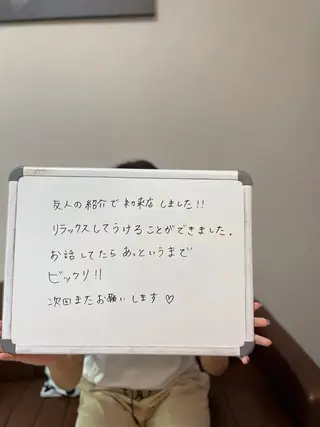 友人の紹介で初来店しました!!
リラックスしてうけることができました.
お話してたらあっというまで
ビックリ!!
次回またお願いします♡